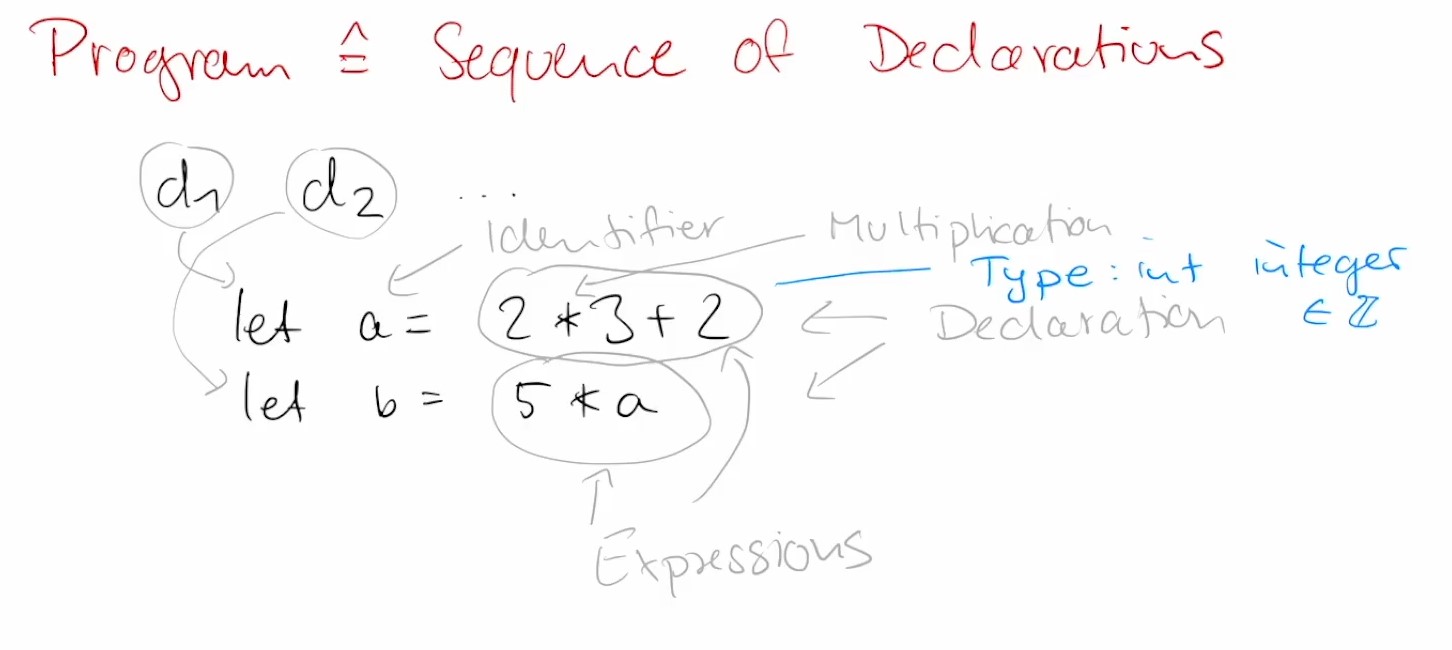 Program ≙ Sequence of Declarations
d1 d2 ...
Identifier Multiplication
Type: int integer
∈ ℤ
let a = 2 * 3 + 2 Declaration
let b = 5 * a
Expressions